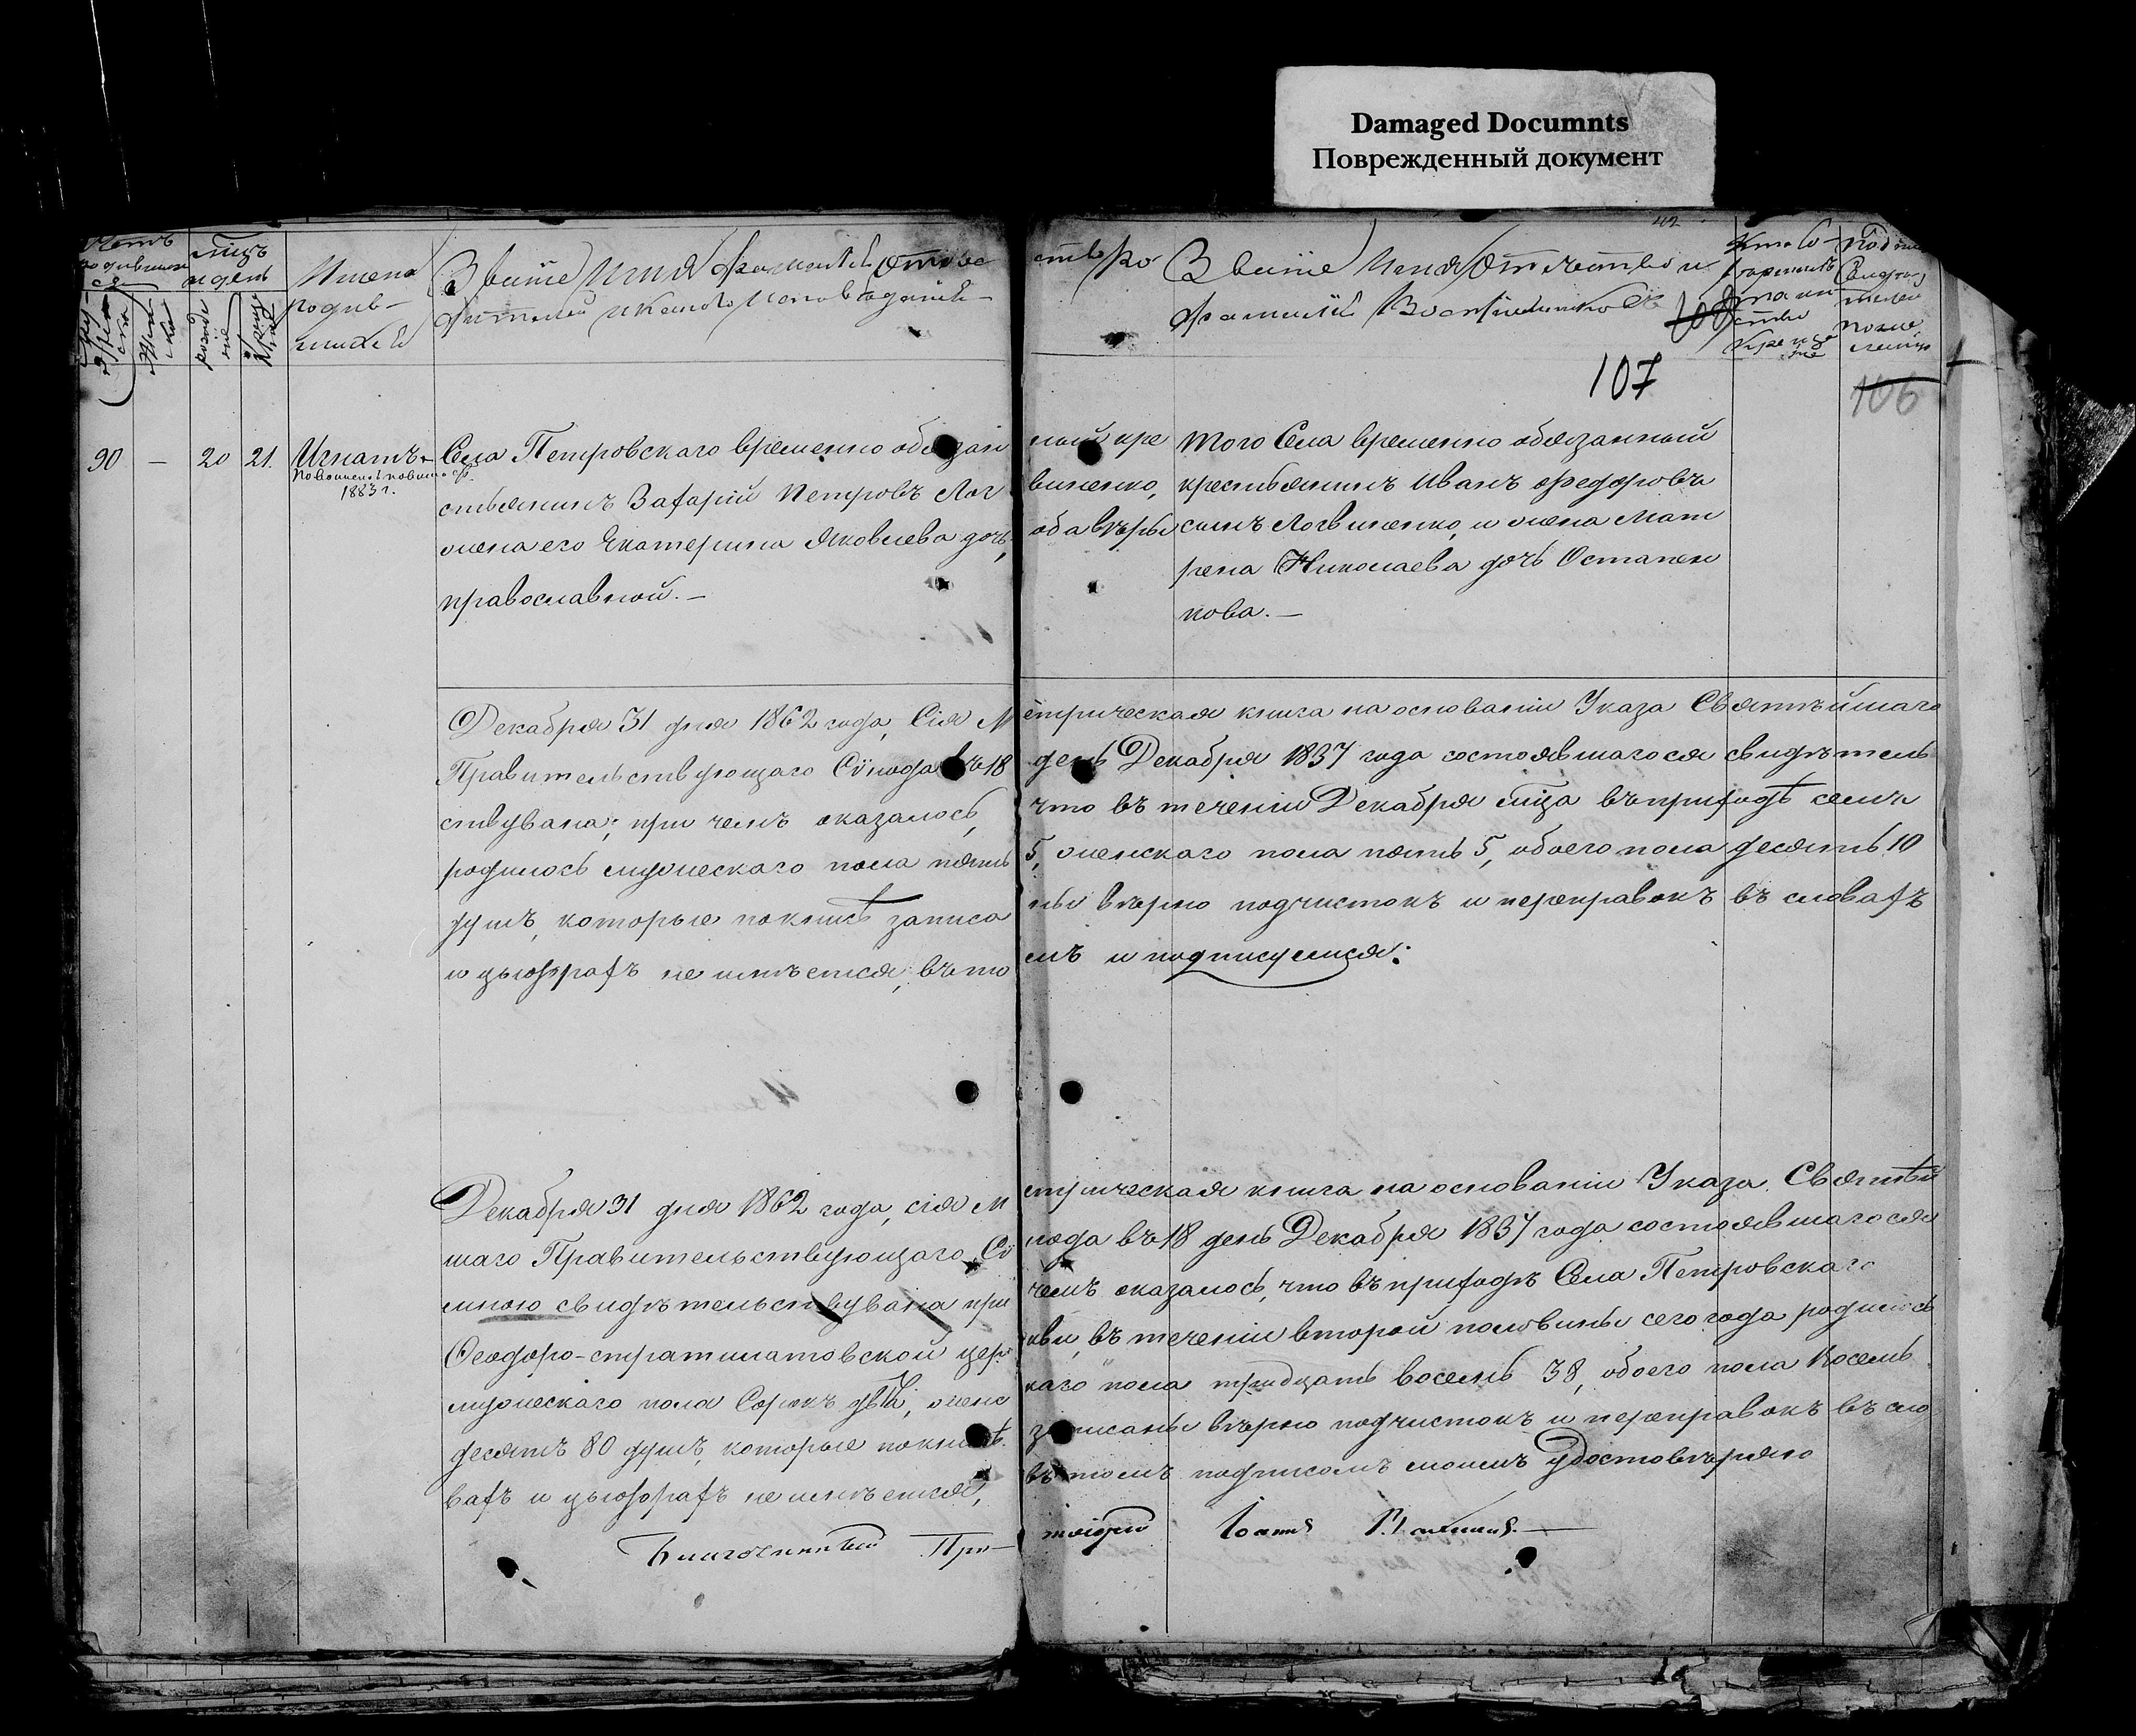 Damaged Documnts
Поврежденный документ
42
мѣсяцъ
и день
Имена
родив-
шихся
Званіе Имя Фамилія Отчес
Званіе Имя Отчество и
фамилія Воспріемниковъ
108
107
106
90 — 20 21. Игнатъ
Повоинской повин
1883 г.
Села Петровскаго временно обязан
ный кре
стьянинъ Захарій Петровъ Лог
виненко,
жена его Екатерина Яковлева дочь,
оба вѣры
православной. —
Того Села временно обязанный
крестьянинъ Иванъ Федоровъ
сынъ Логвиненко, и жена Мат
рена Николаева дочь Остапен
кова. —
Декабря 31 дня 1862 года, Сія М
етрическая книга на основаніи Указа Святѣйшаго
Правительствующаго Сѵнода въ 18
день Декабря 1837 года состоявшагося свидѣтель
ствувана; при чемъ оказалось,
что въ теченіи Декабря мѣсяца въ приходѣ семъ
родилось мужескаго пола пять
5, женскаго пола пять 5, обоего пола десять 10
душъ, которые по книгѣ записа
ны вѣрно подчистокъ и переправокъ въ словахъ
и цыфрахъ не имѣется, въ то
мъ и подписуемся:
Декабря 31 дня 1862 года, сія М
етрическая книга на основаніи Указа Святѣй
шаго Правительствующаго Сѵ
нода въ 18 день Декабря 1837 года состоявшагося
мною свидѣтельствувана при
чемъ оказалось, что въ приходѣ Села Петровскаго
Ѳеодоро-стратилатовской цер
кви, въ теченіи второй половины сего года родилось
мужескаго пола Сорокъ двѣ, женс
каго пола тридцать восемь 38, обоего пола восемь
десятъ 80 душъ, которые по книгѣ
записаны вѣрно подчистокъ и переправокъ въ сло
вахъ и цыфрахъ не имѣется,
въ томъ подписомъ моимъ удостовѣряю
Благочинный Про
тоіерей Іоаннъ